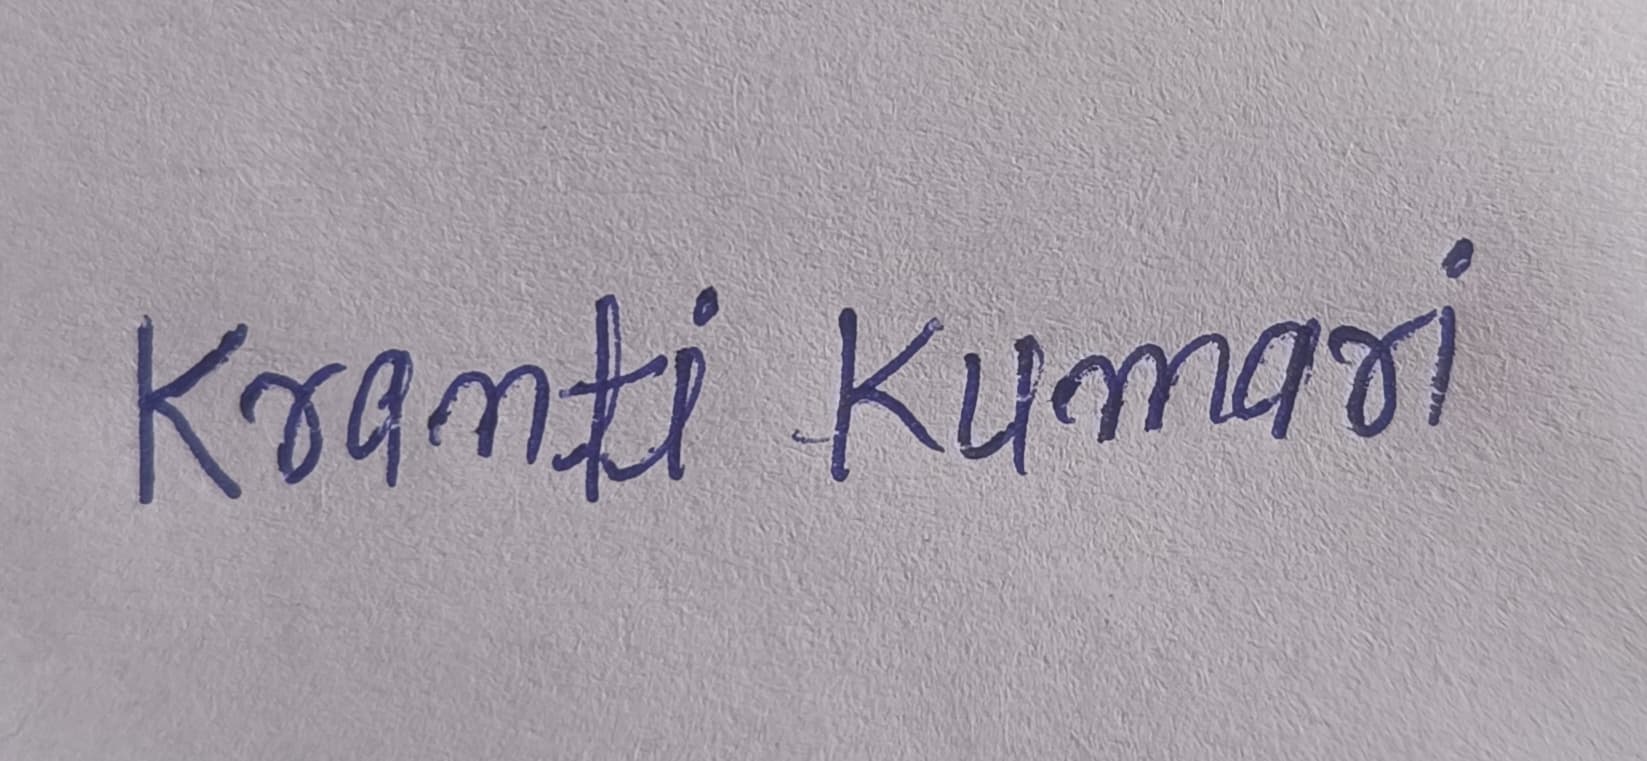 Kranti Kumari